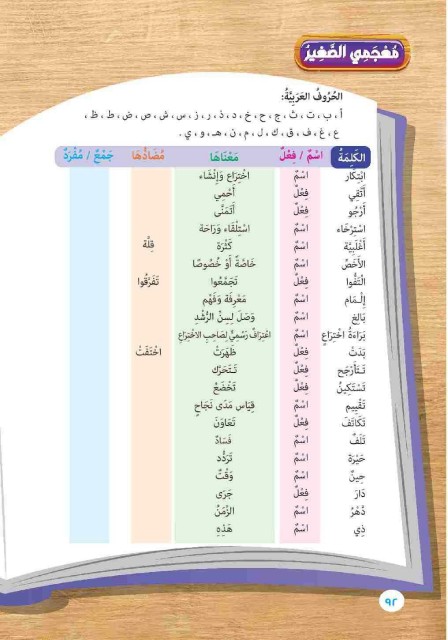 مُعْجَمِي الصَّغِيرُ
الحُرُوفُ العَرَبِيَّةُ:
أ ، ب ، ت ، ث ، ج ، ح ، خ ، د ، ذ ، ر ، ز ، س ، ش ، ص ، ض ، ط ، ظ ،
ع ، غ ، ف ، ق ، ك ، ل ، م ، ن ، هـ ، و ، ي .
الكَلِمَةُ اسْمٌ / فِعْلٌ مَعْنَاهَا مُضَادُّهَا جَمْعٌ / مُفْرَدٌ
ابْتِكَار اسْمٌ اخْتِرَاع وَإِنْشَاء
أَتَّقِي فِعْلٌ أَحْمِي
أَرْجُو فِعْلٌ أَتَمَنَّى
اسْتِرْخَاء اسْمٌ اسْتِلْقَاء وَرَاحَة
أَغْلَبِيَّة اسْمٌ كَثْرَة قِلَّة
الأَخَصّ اسْمٌ خَاصَّةً أَوْ خُصُوصًا
الْتَفُّوا فِعْلٌ تَجَمَّعُوا تَفَرَّقُوا
إِلْمَام اسْمٌ مَعْرِفَة وَفَهْم
بَالِغ اسْمٌ وَصَلَ لِسِنِّ الرُّشْدِ
بَرَاءَةُ اخْتِرَاعٍ اسْمٌ اعْتِرَافٌ رَسْمِيٌّ لِصَاحِبِ الاخْتِرَاعِ
بَدَتْ فِعْلٌ ظَهَرَتْ اخْتَفَتْ
تَتَأَرْجَح فِعْلٌ تَتَحَرَّك
تَسْتَكِينُ فِعْلٌ تَخْضَعُ
تَقْيِيم اسْمٌ قِيَاس مَدَى نَجَاحٍ
تَكَاتَفَ فِعْلٌ تَعَاوَنَ
تَلَفٌ اسْمٌ فَسَادٌ
حَيْرَة اسْمٌ تَرَدُّد
حِينٌ اسْمٌ وَقْتٌ
دَارَ فِعْلٌ جَرَى
دَهْرٌ اسْمٌ الزَّمَنُ
ذِي اسْمٌ هَذِهِ
٩٢